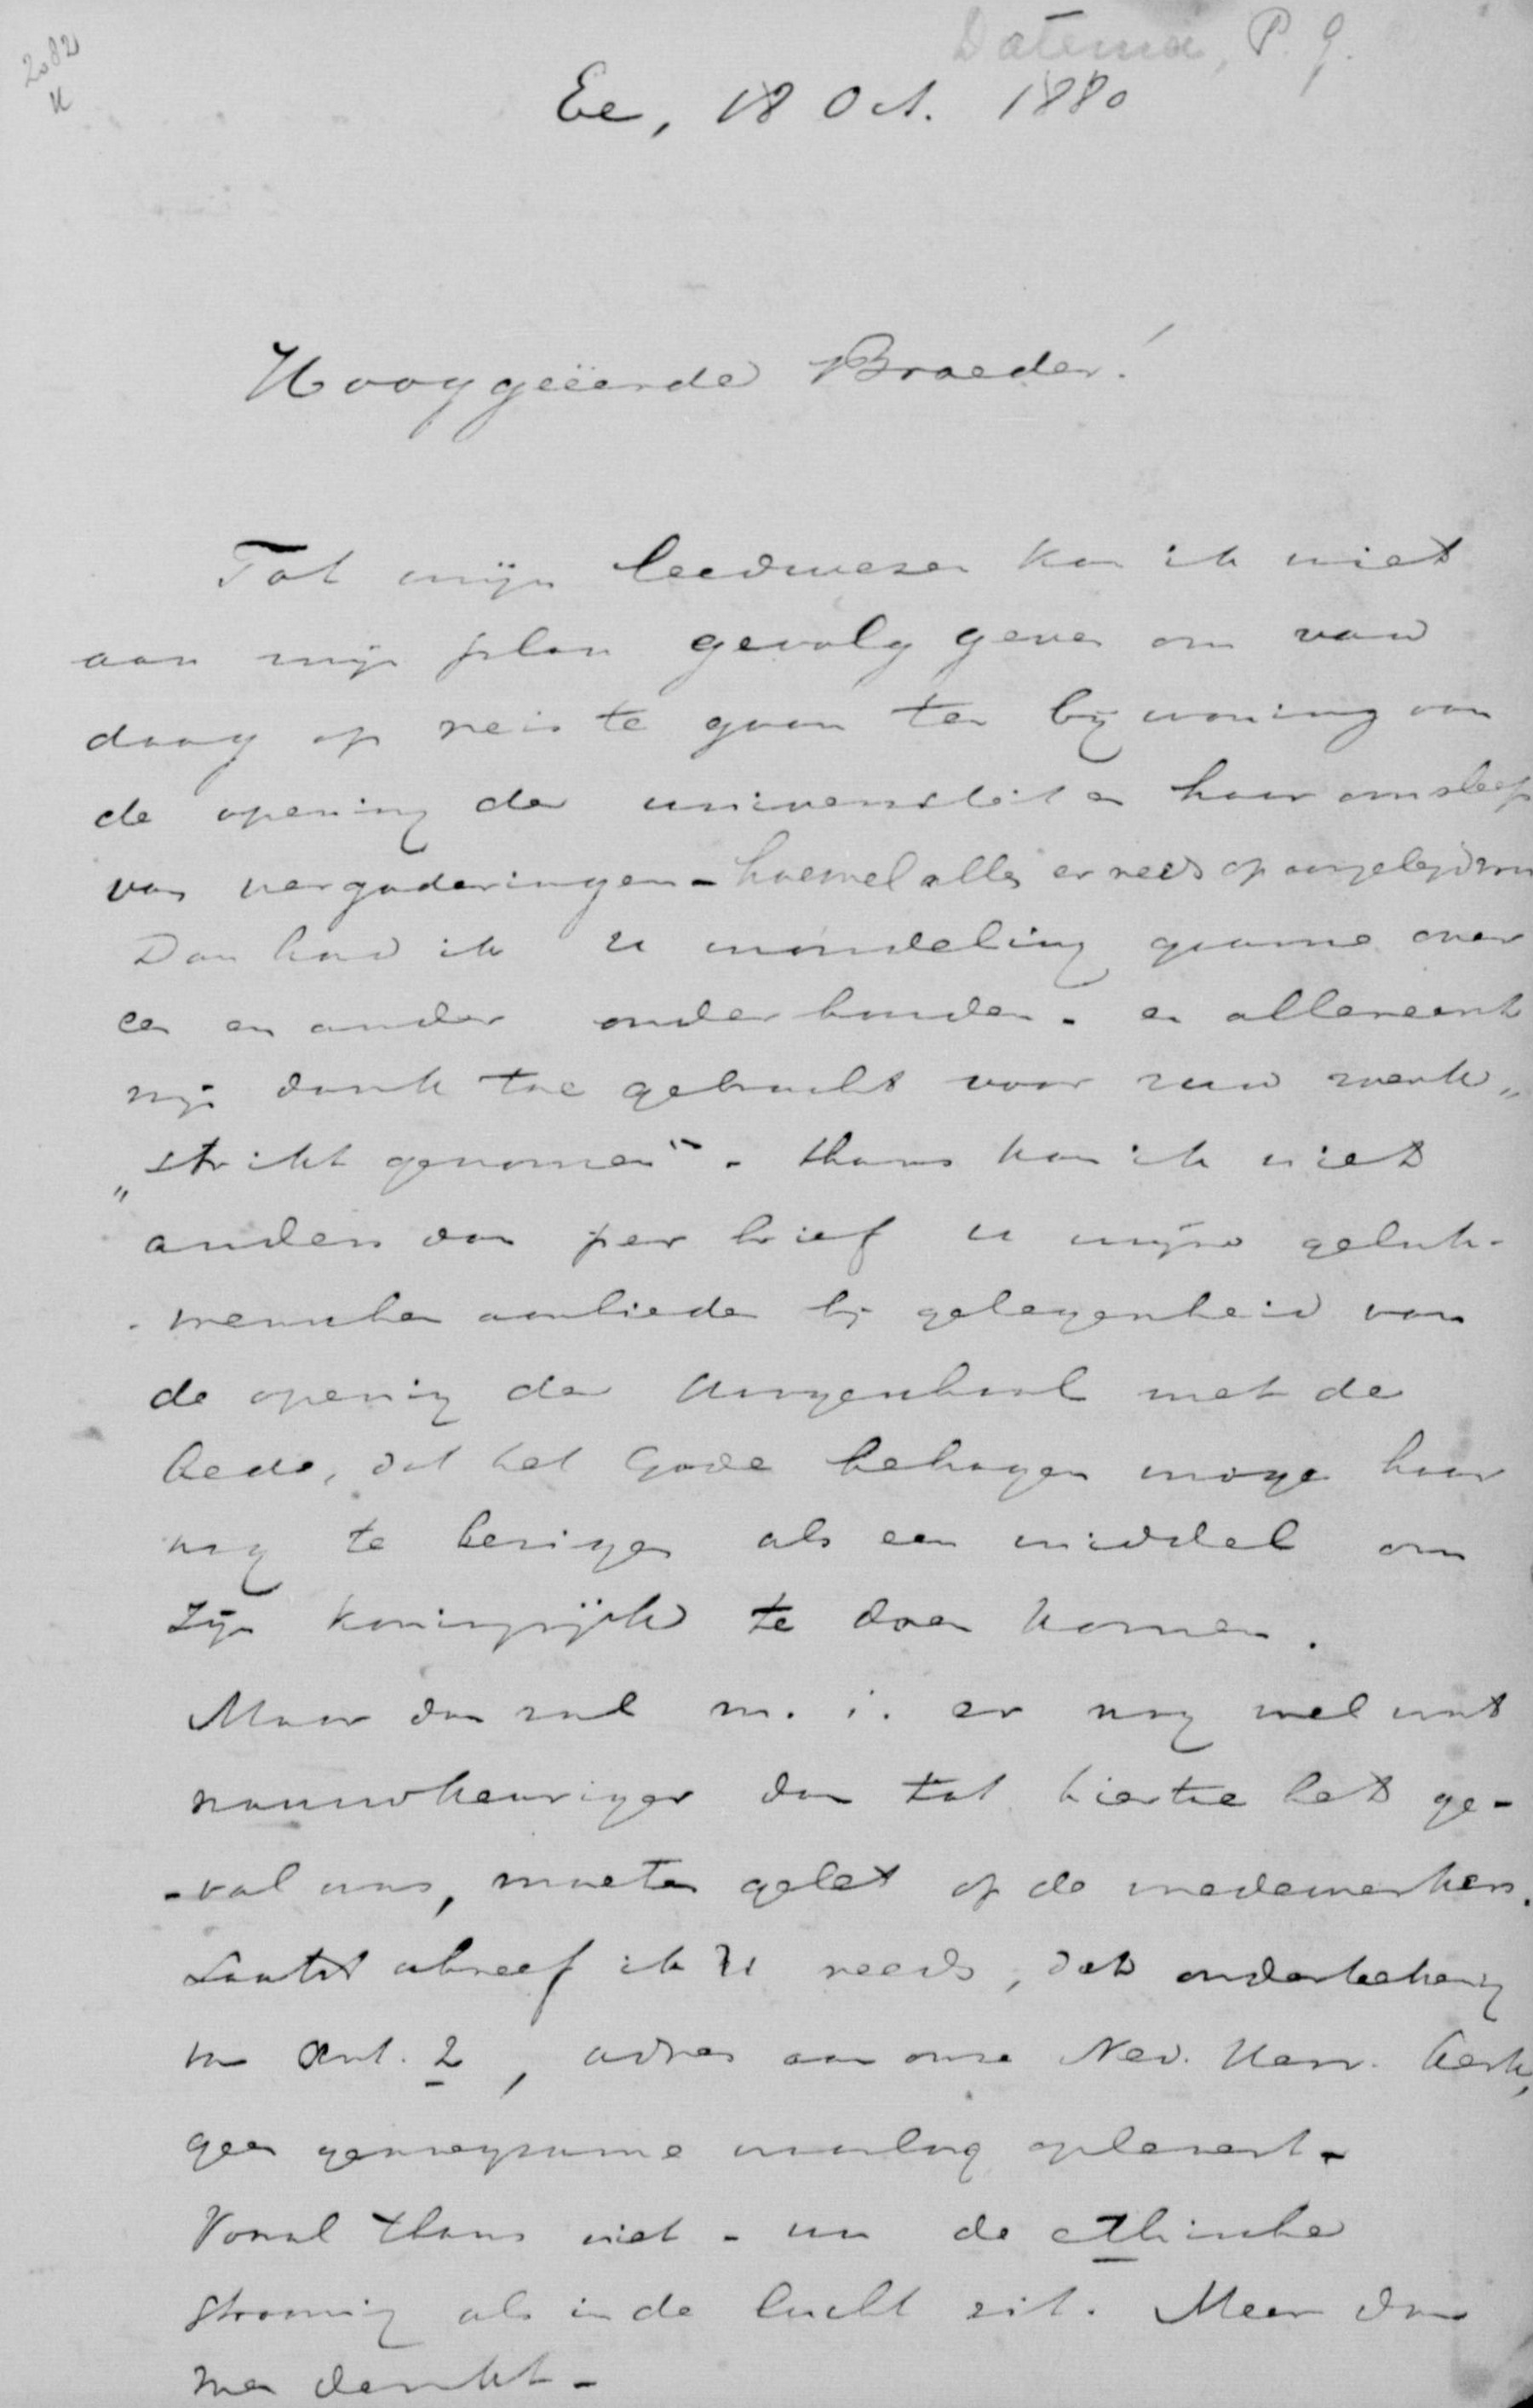 2082
Datema, P. G.
Ee, 18 Oct. 1880
Hooggeëerde Broeder!
Tot mijn leedwezen kan ik niet
aan mijn plan gevolg geven om van
daag op reis te gaan ter bijwoning van
de opening der universiteit en haar omsleep
van vergaderingen - hoewel alles er reeds op aangelegd was
Dan had ik U mondeling gaarne over
een en ander onderhouden - en allereerst
mijn dank toe gebracht voor uw werk „
„strikt genomen". Thans kan ik niet
anders dan per brief u mijne geluk-
-wenschen aanbieden bij gelegenheid van
de opening der Hoogeschool met de
bede, dat het Gode behagen moge haar
nog te bezigen als een middel om
Zijn koningrijk te doen komen.
Maar dan zal m. i. er nog wel wat
nauwkeuriger dan tot hiertoe het ge-
-val was, moeten gelet op de medewerkers.
Laatst schreef ik U reeds, dat onderteekening
van Art. 2, adres aan onze Ned. Herv. Kerk,
geen genoegzame waarborg oplevert -
Vooral thans niet - nu de ethische
strooming als in de lucht zit. Meer dan
men denkt -